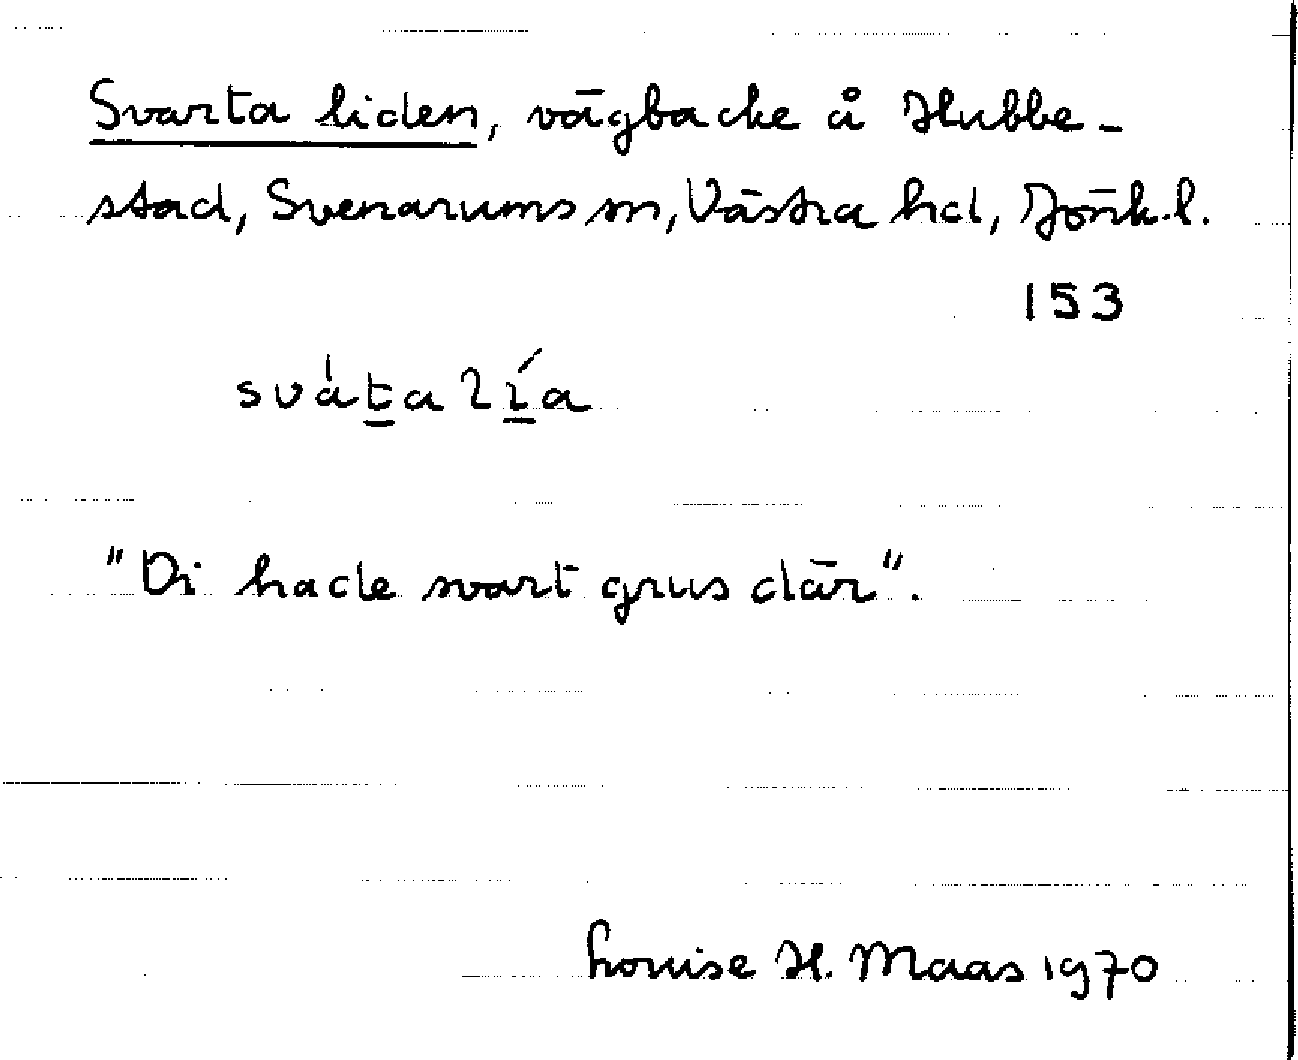 Svarta liden, vägbacke å Hubbe-
stad, Svenarums sn, Västra hd, Jönk.l.
153
"Di hade svart grus där".
Louise H. Maas 1970